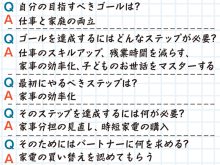 Q 自分の目指すべきゴールは?
A 仕事と家庭の両立
Q ゴールを達成するにはどんなステップが必要?
A 仕事のスキルアップ、残業時間を減らす、
家事の効率化、子どものお世話をマスターする
Q 最初にやるべきステップは?
A 家事の効率化
Q そのステップを達成するには何が必要?
A 家事分担の見直し、時短家電の購入
Q そのためにはパートナーに何を求める?
A 家電の買い替えを認めてもらう